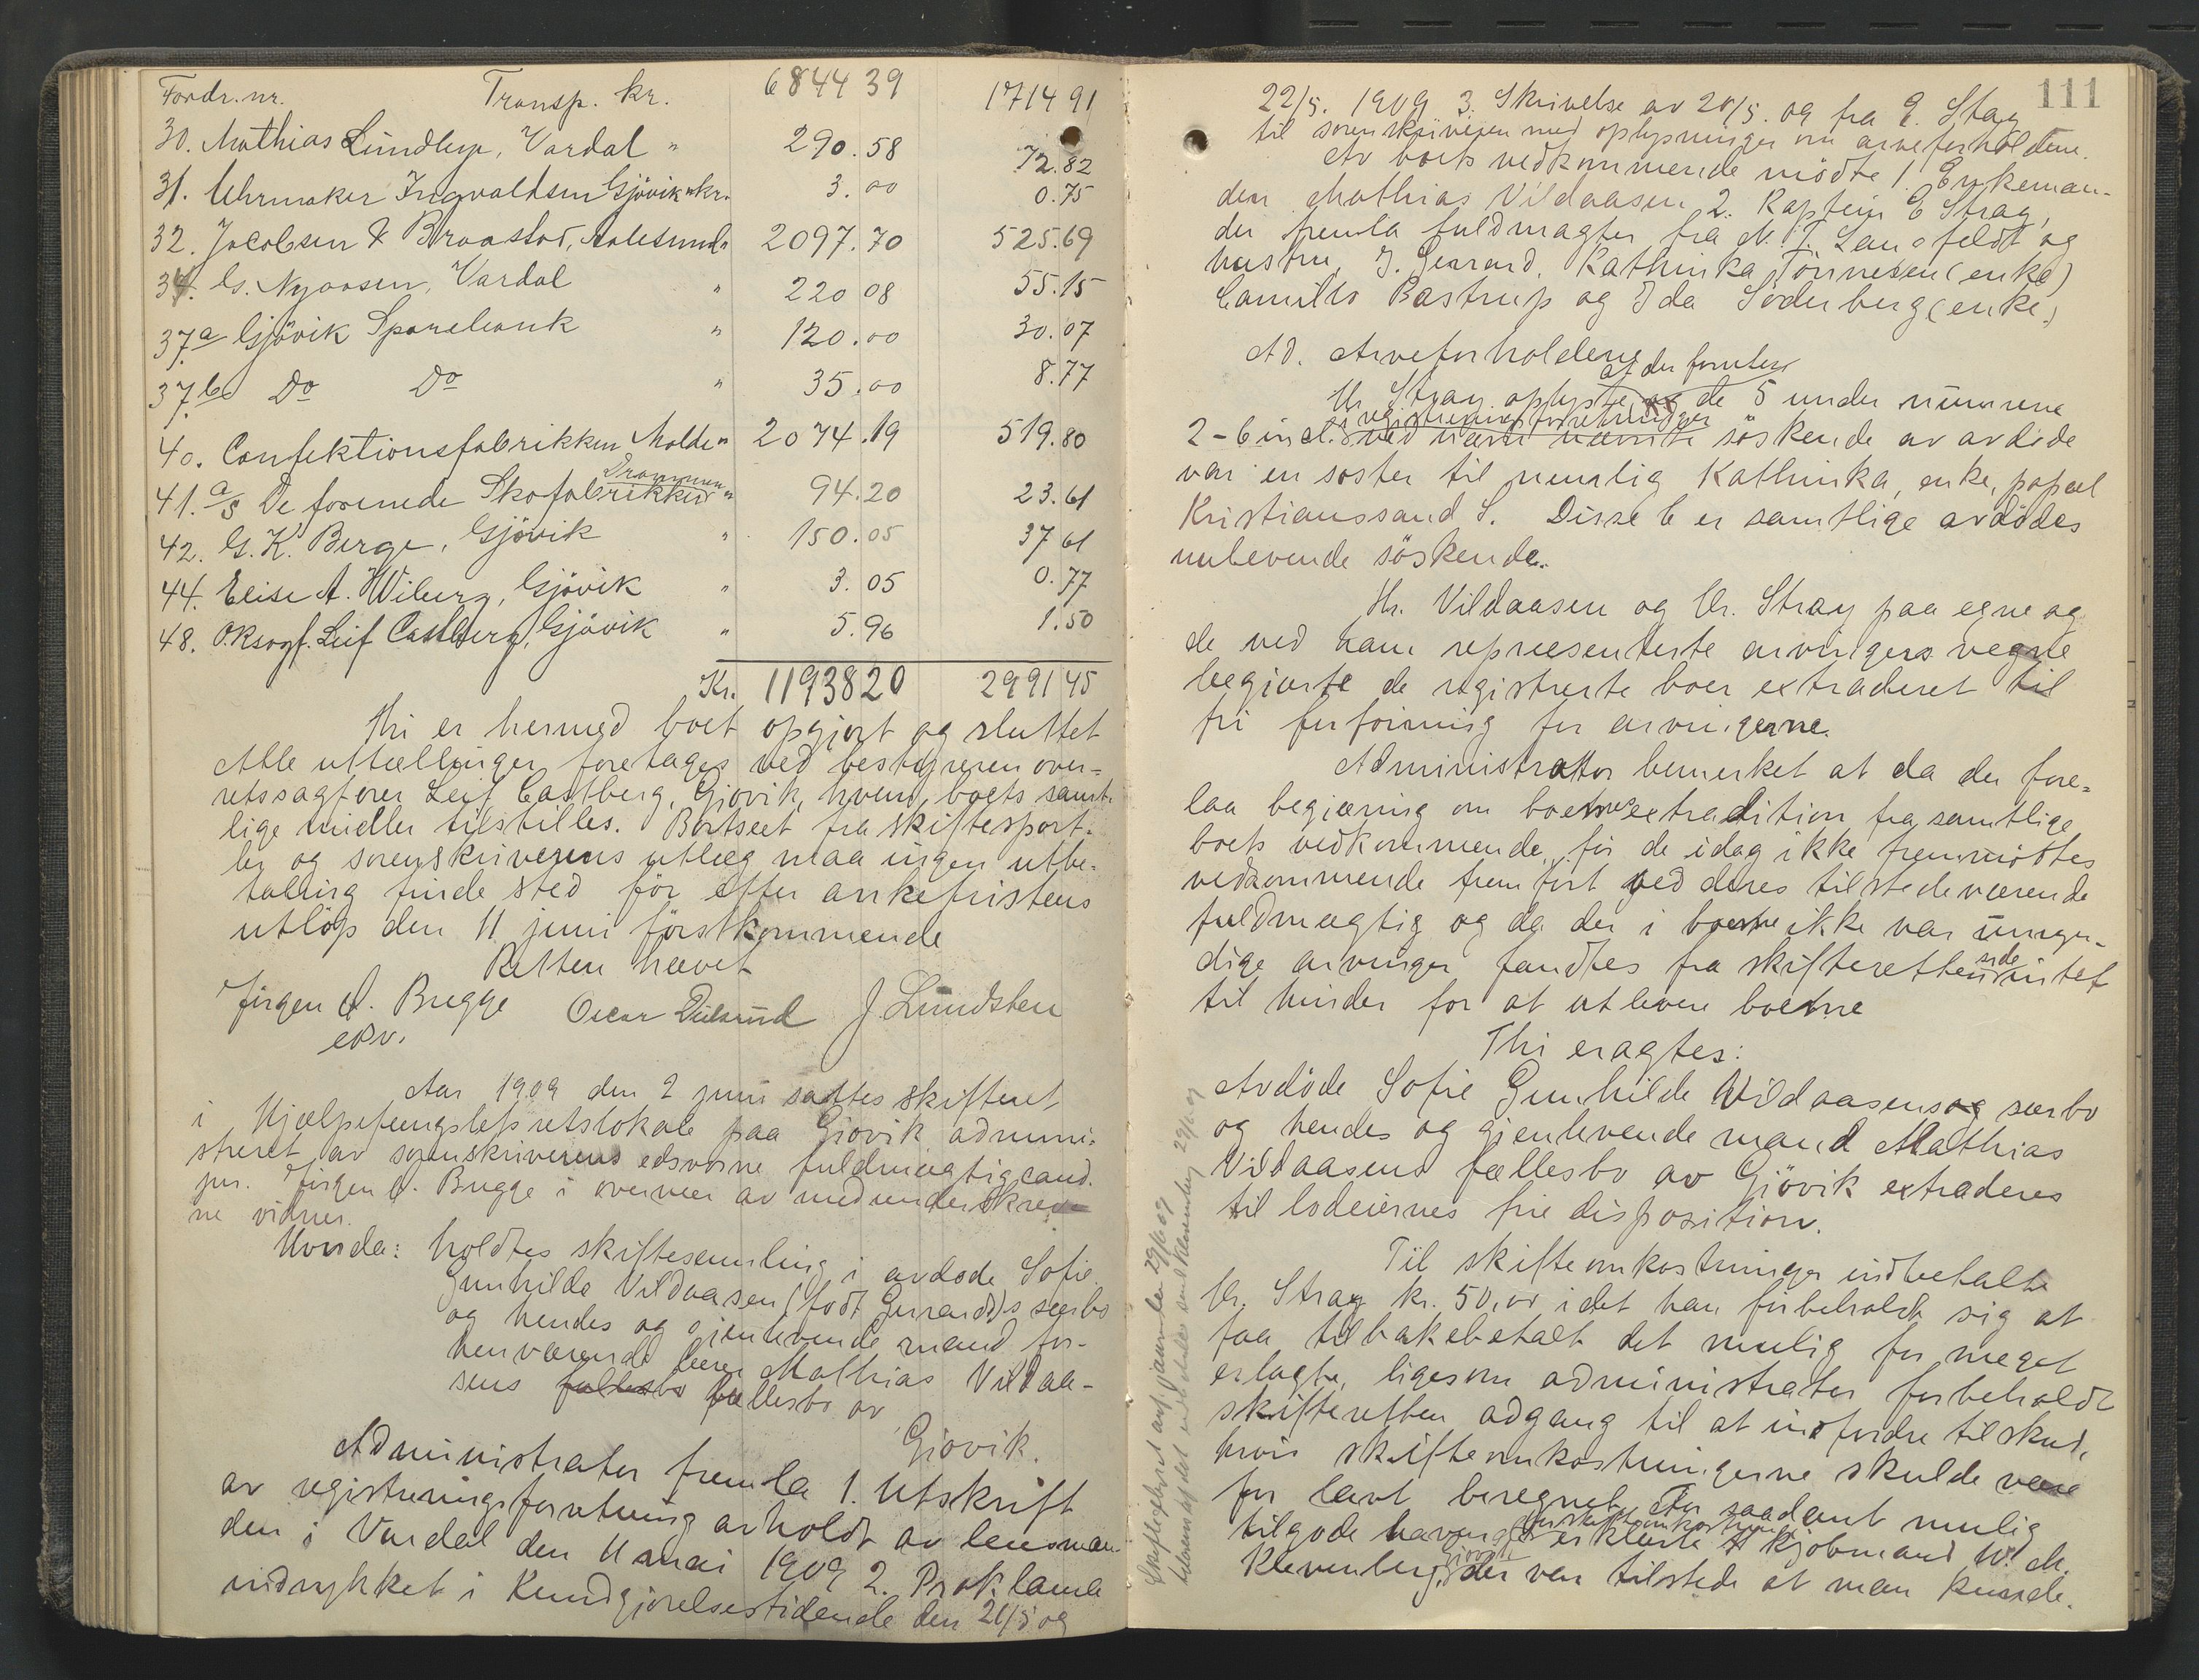 Fordr. nr. Transp. kr. 6844 39 1714 91
30. Mathias Lundby, Vardal " 290.58 72.82
31. Uhrmaker Ingvaldsen Gjövik kr. 3.00 0.75
32. Jacobsen & Braastad, Aalesund " 2097.70 525.69
34. G. Nyaasen, Vardal " 220 08 55.15
37a Gjövik Sparebank " 120.00 30.07
37b Do Do " 35.00 8.77
40. Confektionsfabrikken Molde " 2074.19 519.80
41. a/s De forenede Skofabrikker Drammen " 94.20 23.61
42. G. K. Berge, Gjövik " 150.05 37 61
44. Elise A. Wiberg, Gjövik " 3.05 0.77
48. O.R.sagf. Leif Castberg, Gjövik " 5.96 1.50
Kr. 11938 20 2991 45
Thi er hermed boet opgjort og sluttet
Alle uttællinger foretages ved bestyreren over-
retssagfører Leif Castberg, Gjøvik, hvem boets samt-
lige midler tilstilles. Bortseet fra skiftesport-
ler og sorenskriverens utlæg maa ingen utbe-
taling finde sted för efter ankefristens
utløp den 11 juni förstkommende
Retten hævet
Jörgen J. Brugge Oscar J. Lundsten
edv.
Aar 1909 den 2 juni sattes skifteret
i Hjælpefængslets retslokale paa Gjøvik admini-
streret av sorenskriverens edsvorne fuldmægtig cand.
jur. Jörgen J. Brugge i overvær av medunderskrev-
ne vidner.
Hvorda: holdtes skiftesamling i avdøde Sofie
Gunhilde Vildaasen (født Gerrard)s særbo
og hendes og gjenlevende mand for-
henværende lærer Mathias Vildaa-
sens fællesbo fællesbo av
Gjøvik.
Administrator fremla 1. Utskrift
av registreringsforretning avholdt av lensman-
den i Vardal den 11 mai 1909 2. Proklama
indrykket i Kundgjørelsestidende den 21/5 og
111
22/5. 1909 3. Skrivelse av 28/5. 09 fra E. Stray
til sorenskriveren med oplysninger om arveforholdene.
Av boets vedkommende mödte 1. Enkeman-
den Mathias Vildaasen 2. Kaptein E Stray,
der fremla fuldmagter fra N. T. Lansfeldt og
hustru, J. Gerrard, Kathinka Tönnesen (enke)
Camilla Bastrup og Ida Söderberg (enke)
Ad. Arveforholdene
at der foruten
Hr. Stray oplyste de 5 under numrene
i registreringsforretningen
2-6 incl. ved navn nævnte söskende av avdöde
var en søster til nemlig Kathinka, enke, papeal
Kristianssand S. Disse 6 er samtlige avdödes
nulevende söskende.
Hr. Vildaasen og Hr. Stray paa egne og
de ved ham representerte arvingers vegne
begjærte de registrerte boer extraderet til
fri forföining for arvingerne.
Administrator bemerket at da der fore-
laa begjæring om boernes extradition fra samtlige
boets vedkommende, for de idag ikke fremmöttes
vedkommende fremfört ved deres tilstedeværende
fuldmægtig og da der i boerne ikke var umyn-
dige arvinger fandtes fra skifterettens side intet
til hinder for at utlevere boerne
Thi eragtes:
Avdöde Sofie Gunhilde Vildaasens særbo
og hendes og gjenlevende mand Mathias
Vildaasens fællesbo av Gjövik extraderes
til lodeiernes frie disposition.
Til skifteomkostninger indbetalte
Hr. Stray kr. 50,00 idet han forbeholdt sig at
faa tilbakebetalt det mulig for meget
erlagte, ligesom administrator forbeholdt
skifteretten adgang til at indfordre tilskud,
hvis skifteomkostningerne skulde være
for lavt beregnet. For saadant mulig
tilgode havende for skifteomkostninger erklærte kjöbmand W. M.
Klevenberg, Gjövik der var tilstede at man kunde.